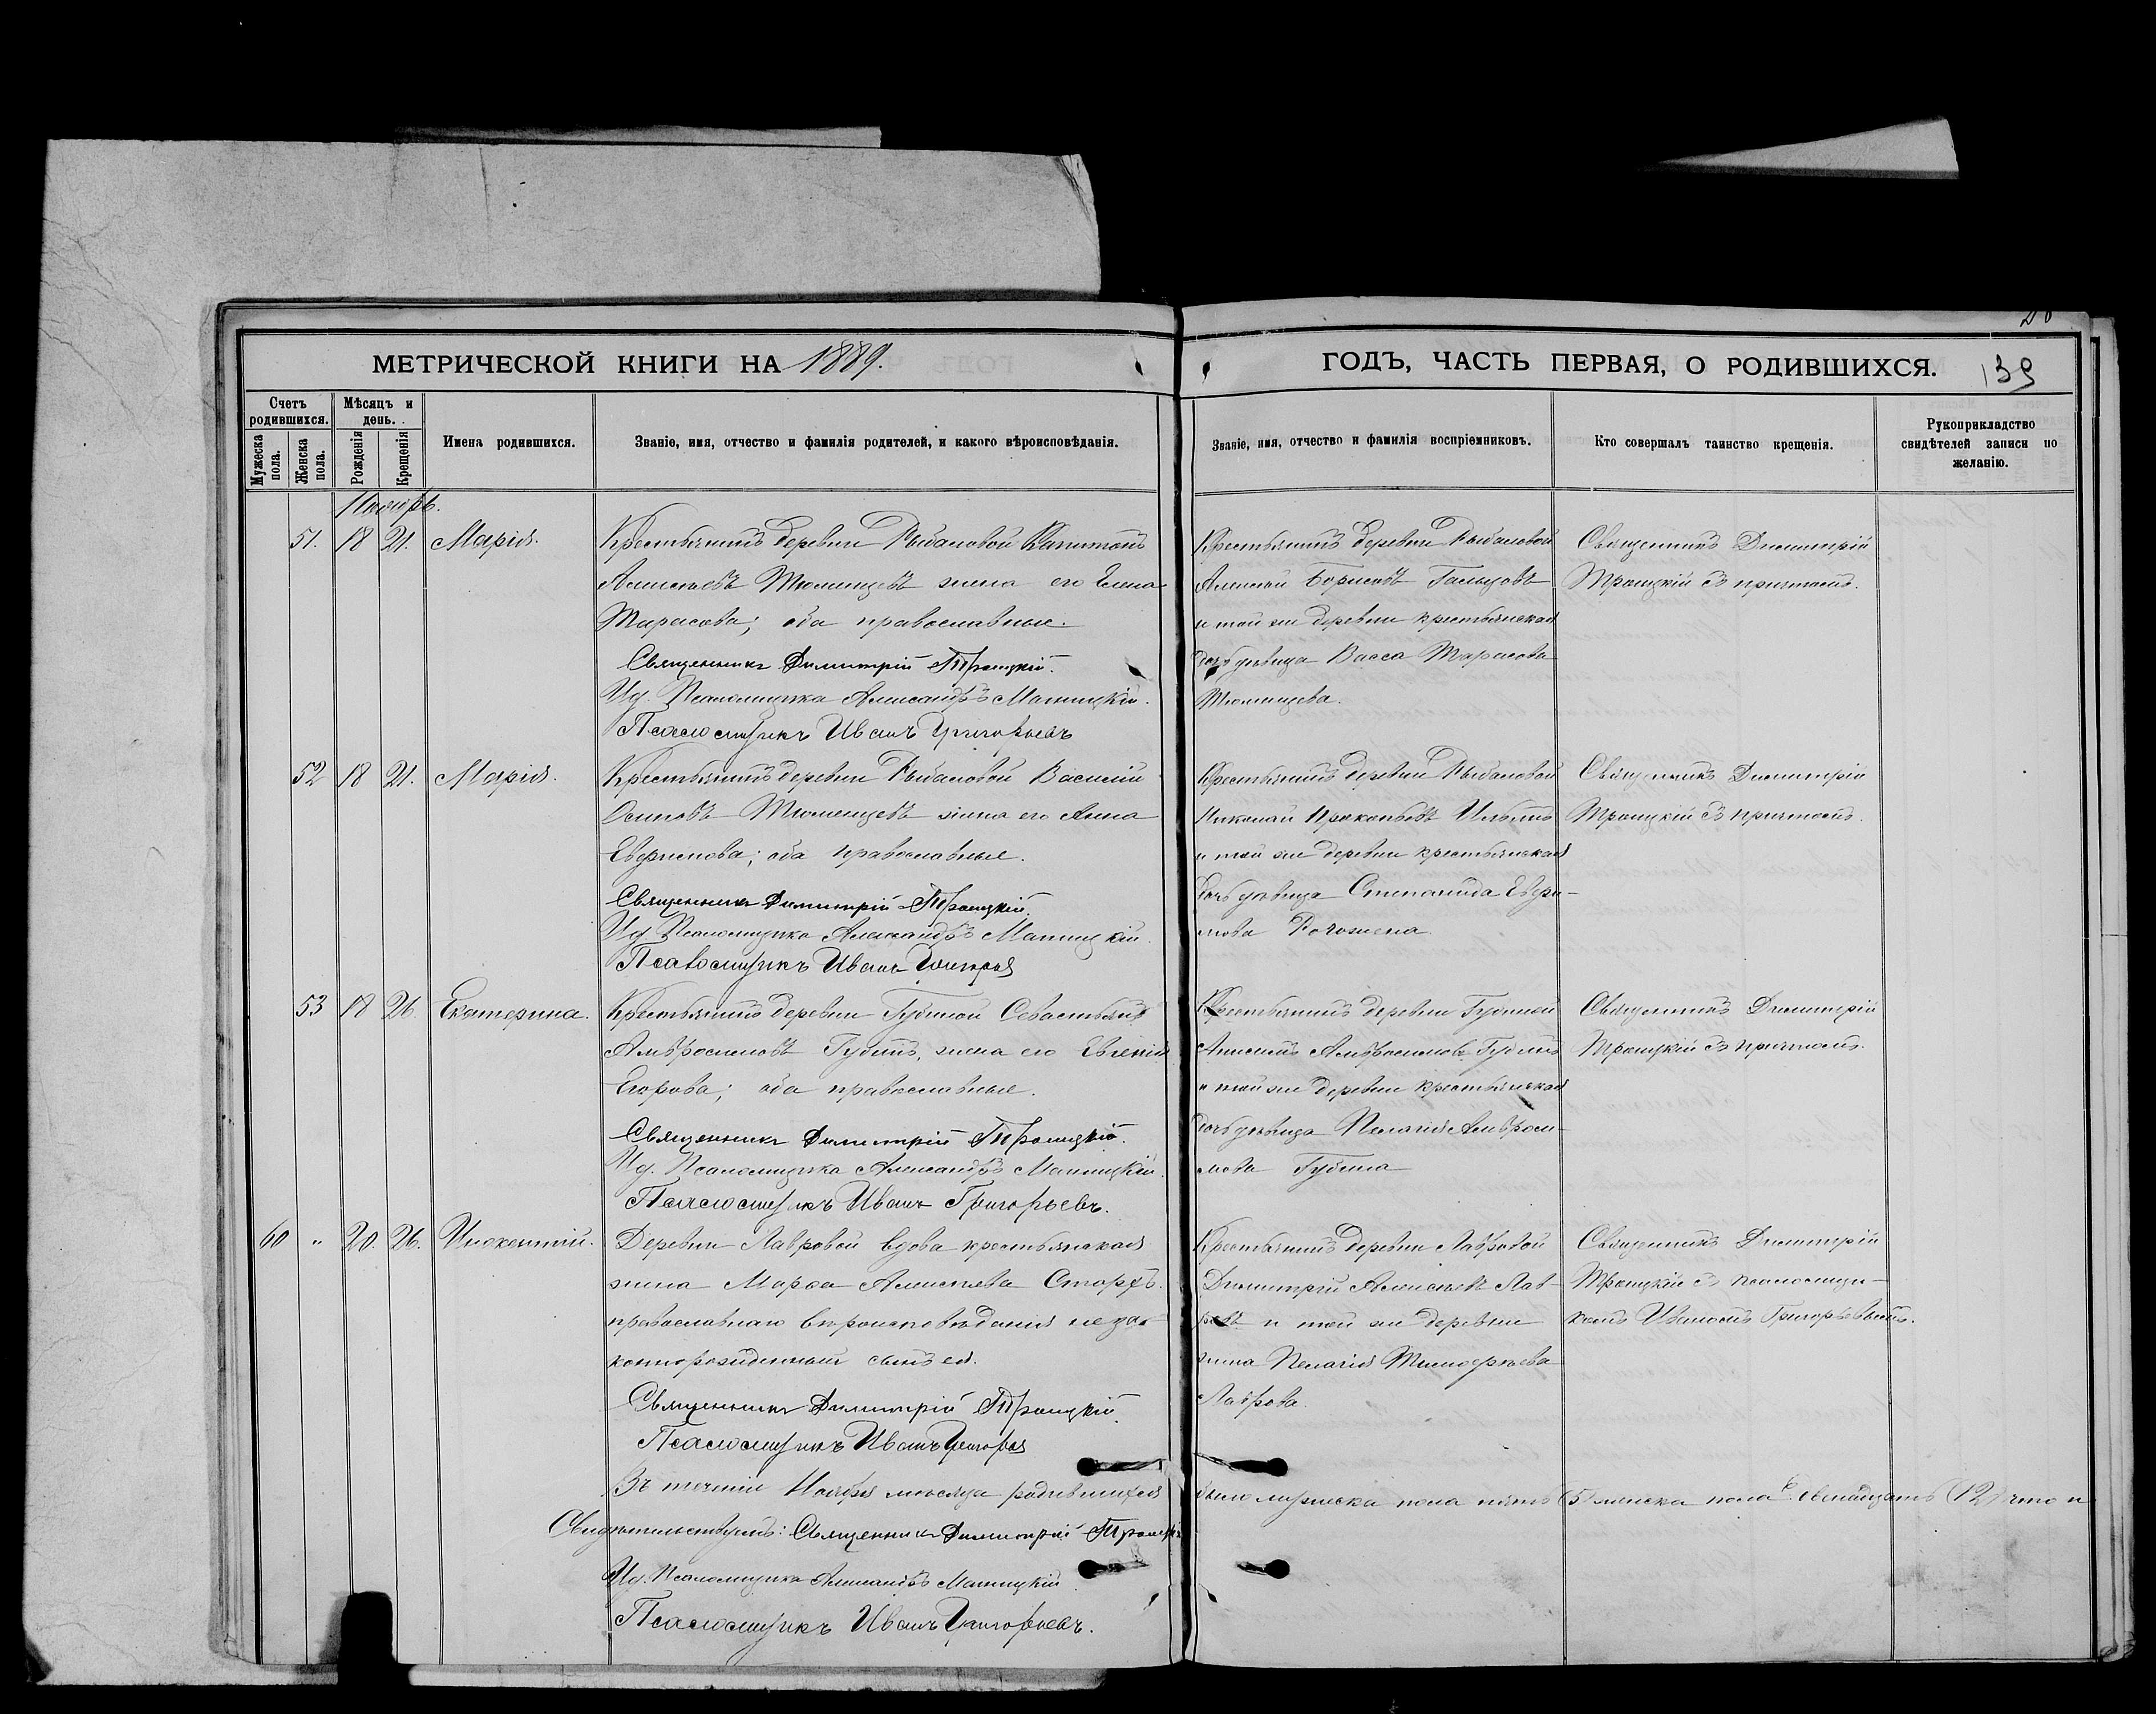 МЕТРИЧЕСКОЙ КНИГИ НА 1889.
ГОДЪ, ЧАСТЬ ПЕРВАЯ, О РОДИВШИХСЯ.
139
Счетъ родившихся.
Мужеска пола.
Женска пола.
Мѣсяцъ и день.
Рожденія
Крещенія
Имена родившихся.
Званіе, имя, отчество и фамилія родителей, и какого вѣроисповѣданія.
Званіе, имя, отчество и фамилія воспріемниковъ.
Кто совершалъ таинство крещенія.
Рукоприкладство свидѣтелей записи по желанію.
Ноябрь.
51. 18 21. Марія.
Крестьянинъ деревни Рыбаловой Капитонъ
Алексѣевъ Тюменцевъ жена его Елена
Тарасова; оба православные.
Священникъ Димитрій Троицкій.
Ид. Псаломщика Александръ Матницкій.
Псаломщикъ Иванъ Григорьевъ
Крестьянинъ деревни Рыбаловой
Алексѣй Борисовъ Гальцовъ
и той же деревни крестьянская
дочь дѣвица Васса Тарасова
Тюменцева.
Священникъ Димитрій
Троицкій съ причтомъ.
52 18 21. Марія.
Крестьянинъ деревни Рыбаловой Василій
Осиповъ Тюменцевъ жена его Анна
оба православные.
Священникъ Димитрій Троицкій.
Ид. Псаломщика Александръ Матницкій.
Псаломщикъ Иванъ
Крестьянинъ деревни Рыбаловой
Николай Прокопьевъ Ильинъ
и той же деревни крестьянская
дочь дѣвица Степанида Евфи-
мова
Священникъ Димитрій
Троицкій съ причтомъ.
53 18 26. Екатерина.
Крестьянинъ деревни Губиной Севастьянъ
Амвросимовъ Губинъ, жена его Евгенія
Егорова; оба православные.
Священникъ Димитрій Троицкій.
Ид. Псаломщика Александръ Матницкій.
Псаломщикъ Иванъ Григорьевъ.
Крестьянинъ деревни Губиной
Анисимъ Амвросимовъ Губинъ
и той же деревни крестьянская
дочь дѣвица Пелагія Амвроси-
мова Губина
Священникъ Димитрій
Троицкій съ причтомъ.
60 " 20. 26. Инокентій.
Деревни Лавровой вдова крестьянская
жена Марѳа Алексѣева
православнаго вѣроисповѣданія неза-
коннорожденный сынъ ея.
Священникъ Димитрій Троицкій.
Псаломщикъ Иванъ
Крестьянинъ деревни Лавровой
Димитрій Алексѣевъ Лав-
ровъ и той же деревни
жена Пелагія Тимоѳеева
Лаврова.
Священникъ Димитрій
Троицкій съ псаломщи-
комъ Иваномъ Григорьевымъ.
Въ теченіи Ноября мѣсяца родившихся было мужеска пола пять (5) женска пола двенадцать (12) что и
Свидѣтельствуемъ: Священникъ Димитрій Троицкій
Ид. Псаломщика Александръ Матницкій
Псаломщикъ Иванъ Григорьевъ.